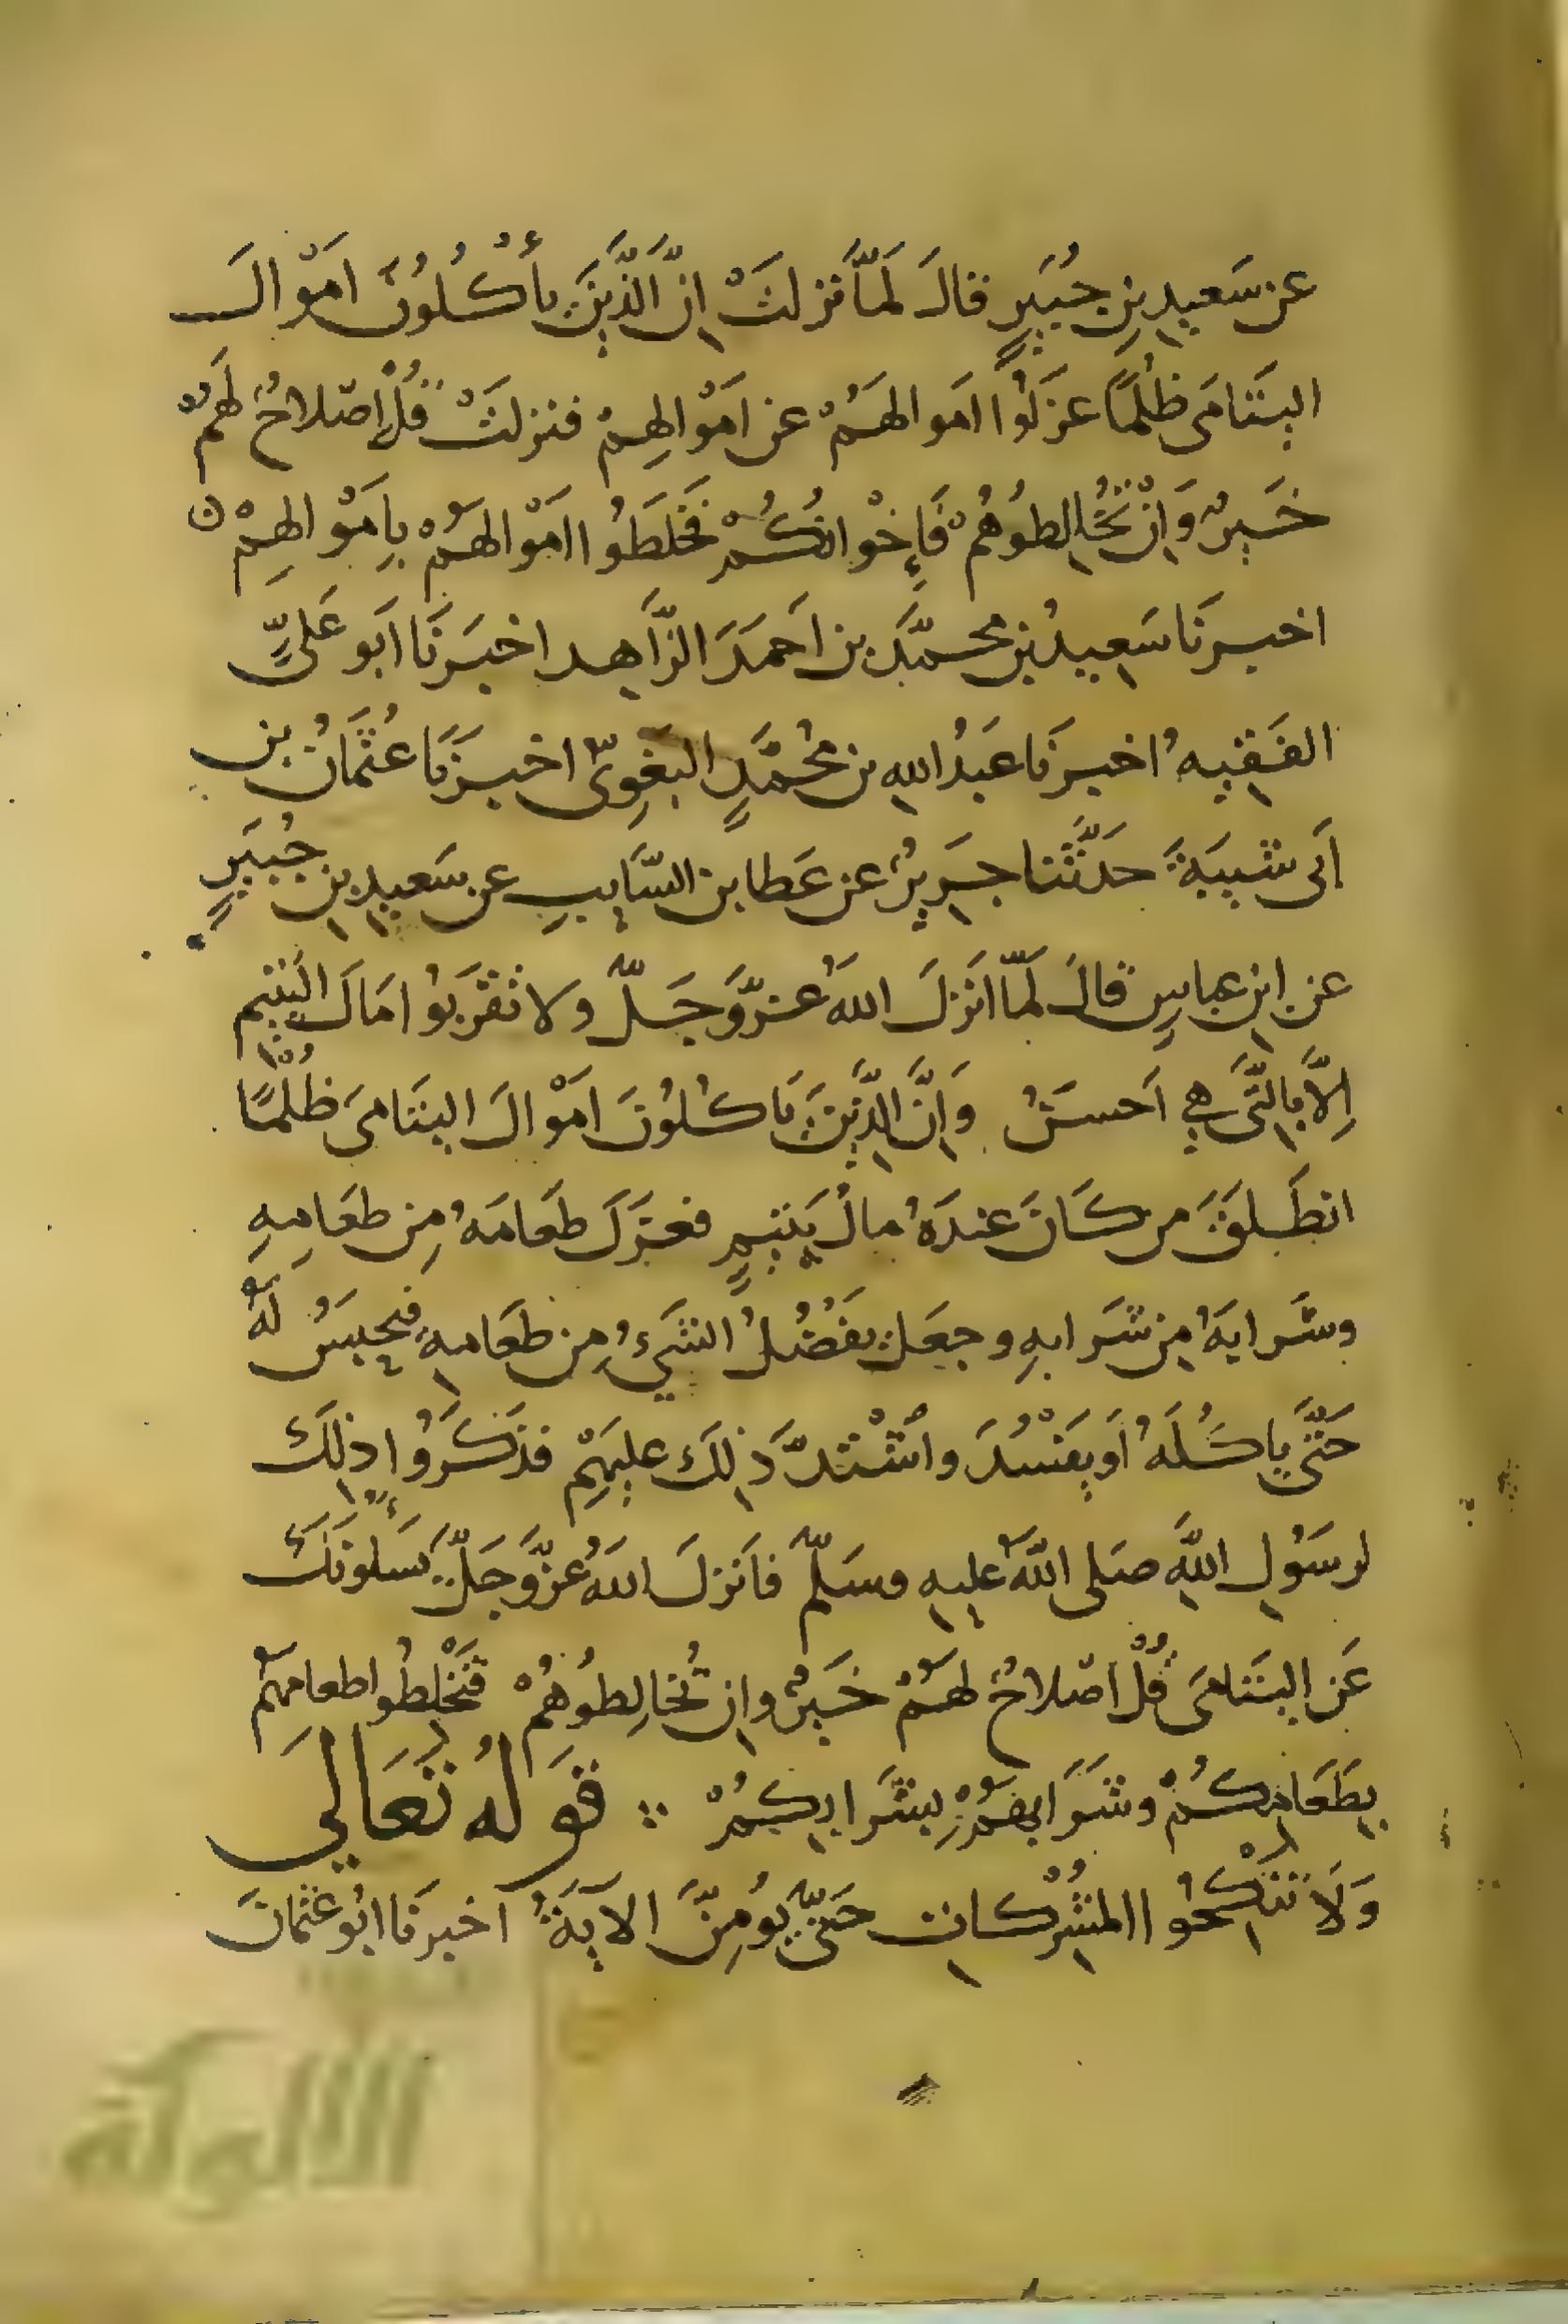 عن سَعِيدِ بنِ جُبَيرٍ قالَ لَمَّا نزلتْ اِنَّ الَّذِينَ يأكُلُونَ امْوالَ
اليَتَامَى ظُلْمًا عزَلُوا امَوالهَمُ عن امَوْالِهِمْ فنزلتْ قُلْ إصْلاحٌ لهَمْ
خَيرٌ وَاِنْ تُخَالِطُوهُمْ فَإِخْوانُكُمْ فَخَلَطُوا امْوالهَمُ بِامَوْالهِمْ ن
اخبرنَا سَعِيدُ بن محمّدَ بن اَحمَدَ الزَّاهِد اخبَرنَا ابَو عَلىٍّ
الفَقِيهُ اخبرنَا عَبدُ اللهِ بن مُحمَّدٍ البَغِوىّ اخبرَنَا عُثمَانُ بن
اَبى شَيبَةَ حدَّثنا جَرِيرٌ عن عَطا بن السَّايبِ عن سَعِيدِ بنِ جُبَيرٍ
عن ابنِ عباسٍ قالَ لَمّا انَزلَ اللهُ عزَّوَجَلَّ ولا تقرَبوُا امَالَ اليَتيِم
اِلاَّ بِالتَّى هِي اَحسَنُ وَاِنَّ الَّذِينَ يَاكُلوُنَ امَوْالَ اليَتَامىَ ظُلْمًا
انطَلقَ من كَانَ عندَهُ مالُ يَتيِمٍ فعزَلَ طعَامَهُ مِن طعَامِهِ
وشَرابَهُ مِن شَرابهِ وجعَلَ يفَضُلُ الشَيءُ مِن طعَامِهِ فيحبِسُ لَهُ
حَتَّى ياكُلَهُ اوَ يفَسْدَ واشْتدَّ ذَلِكَ علَيهِمْ فذَكَرُوا ذلِكَ
لرسَوُلِ اللَّهِ صَلى اللَّهُ عليِهِ وسَلَّمَ فاَنزلَ اللهُ عزَّوَجَلَّ يَسَلوُنَكَ
عَن اليَتَامىَ قُلْ اصْلاحٌ لهَمُ خَيرٌ وإن تُخالِطُوهُمْ فتَخْلِطُوا طعامهَمُ
بِطَعَامِكُمْ وشَرَابهَمُ بِشَرَابِكُمْ ∴ قوَلهُ تَعَالىَ
وَلَا تَنكِحُوا المشْرُكاتِ حَتىَّ يوُمِنَّ الآيَةَ اخبرَنَا ابُو عثمانَ
الألوكة